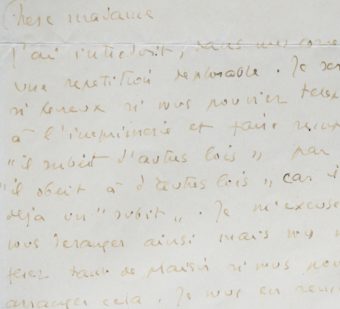 Chère madame
j'ai introduit, dans mes corre
une répétition déplorable. Je ser
si heureux si vous pouviez télép
à l'imprimerie et faire remp
"il subit d'autres lois" par
"il obéit à d'autres lois" car il
déjà un "subit". Je m'excuse
vous déranger ainsi mais vous m
feriez tant de plaisir si vous pou
arranger cela. Je vous en